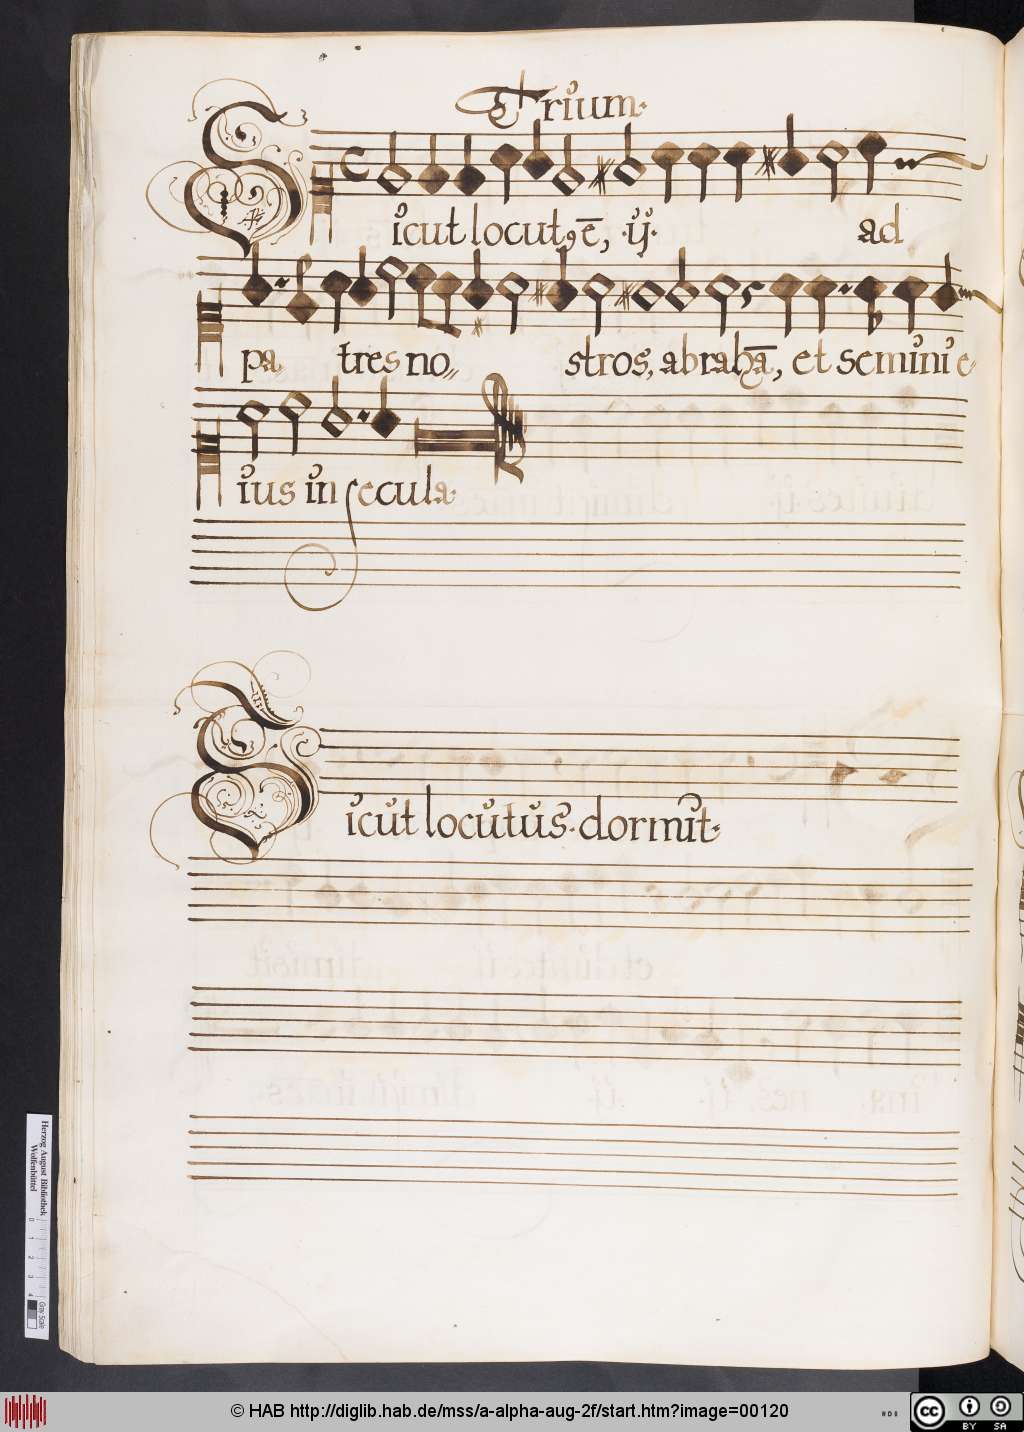 Trium.
Sicut locut9 ē, .ij. ad
pa tres no stros, abrahā, et semini e
ius in secula.
Sicut locutus. dormit.
Herzog August Bibliothek
Wolfenbüttel
0 1 2 3 4
Gray Scale
© HAB http://diglib.hab.de/mss/a-alpha-aug-2f/start.htm?image=00120
HAB
cc BY SA